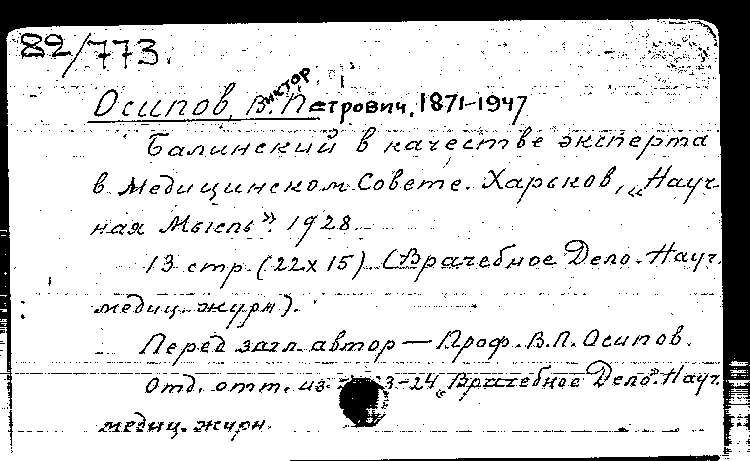 82/773.
Осипов, Виктор Петрович, 1871-1947
Балинский в качестве эксперта
в Медицинском Совете. Харьков, „Науч
ная Мысль". 1928
13 стр. (22x15) (Врачебное Дело. Науч.
медиц. журн).
Перед загл. автор — Проф. В.П. Осипов.
Отд. отт. из 23-24 „Врачебное Дело". Науч.
медиц. журн.